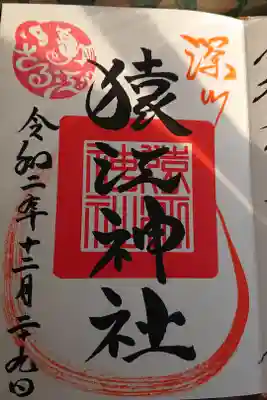 深川
猿江神社
猿江神社
令和二年十二月二九日